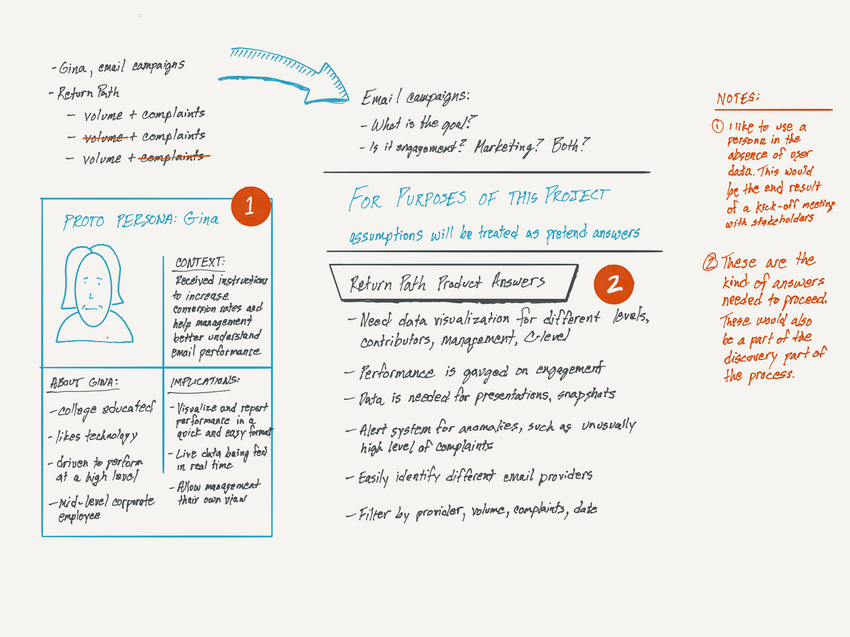 - Gina, email campaigns
- Return Path
- volume + complaints
- volume + complaints
- volume + complaints
Email campaigns:
- What is the goal?
- Is it engagement? Marketing? Both?
FOR PURPOSES OF THIS PROJECT
assumptions will be treated as pretend answers
1
PROTO PERSONA: Gina
CONTEXT:
Received instructions
to increase
conversion rates and
help management
better understand
email performance
ABOUT GINA:
- college educated
- likes technology
- driven to perform
at a high level
- mid-level corporate
employee
IMPLICATIONS:
- Visualize and report
performance in a
quick and easy format
- Live data being fed
in real time
- Allow management
their own view
Return Path Product Answers
2
- Need data visualization for different levels,
contributors, management, C-level
- Performance is gauged on engagement
- Data is needed for presentations, snapshots
- Alert system for anomalies, such as unusually
high level of complaints
- Easily identify different email providers
- Filter by provider, volume, complaints, date
NOTES:
1 I like to use a
persona in the
absence of user
data. This would
be the end result
of a kick-off meeting
with stakeholders
2 These are the
kind of answers
needed to proceed.
These would also
be a part of the
discovery part of
the process.